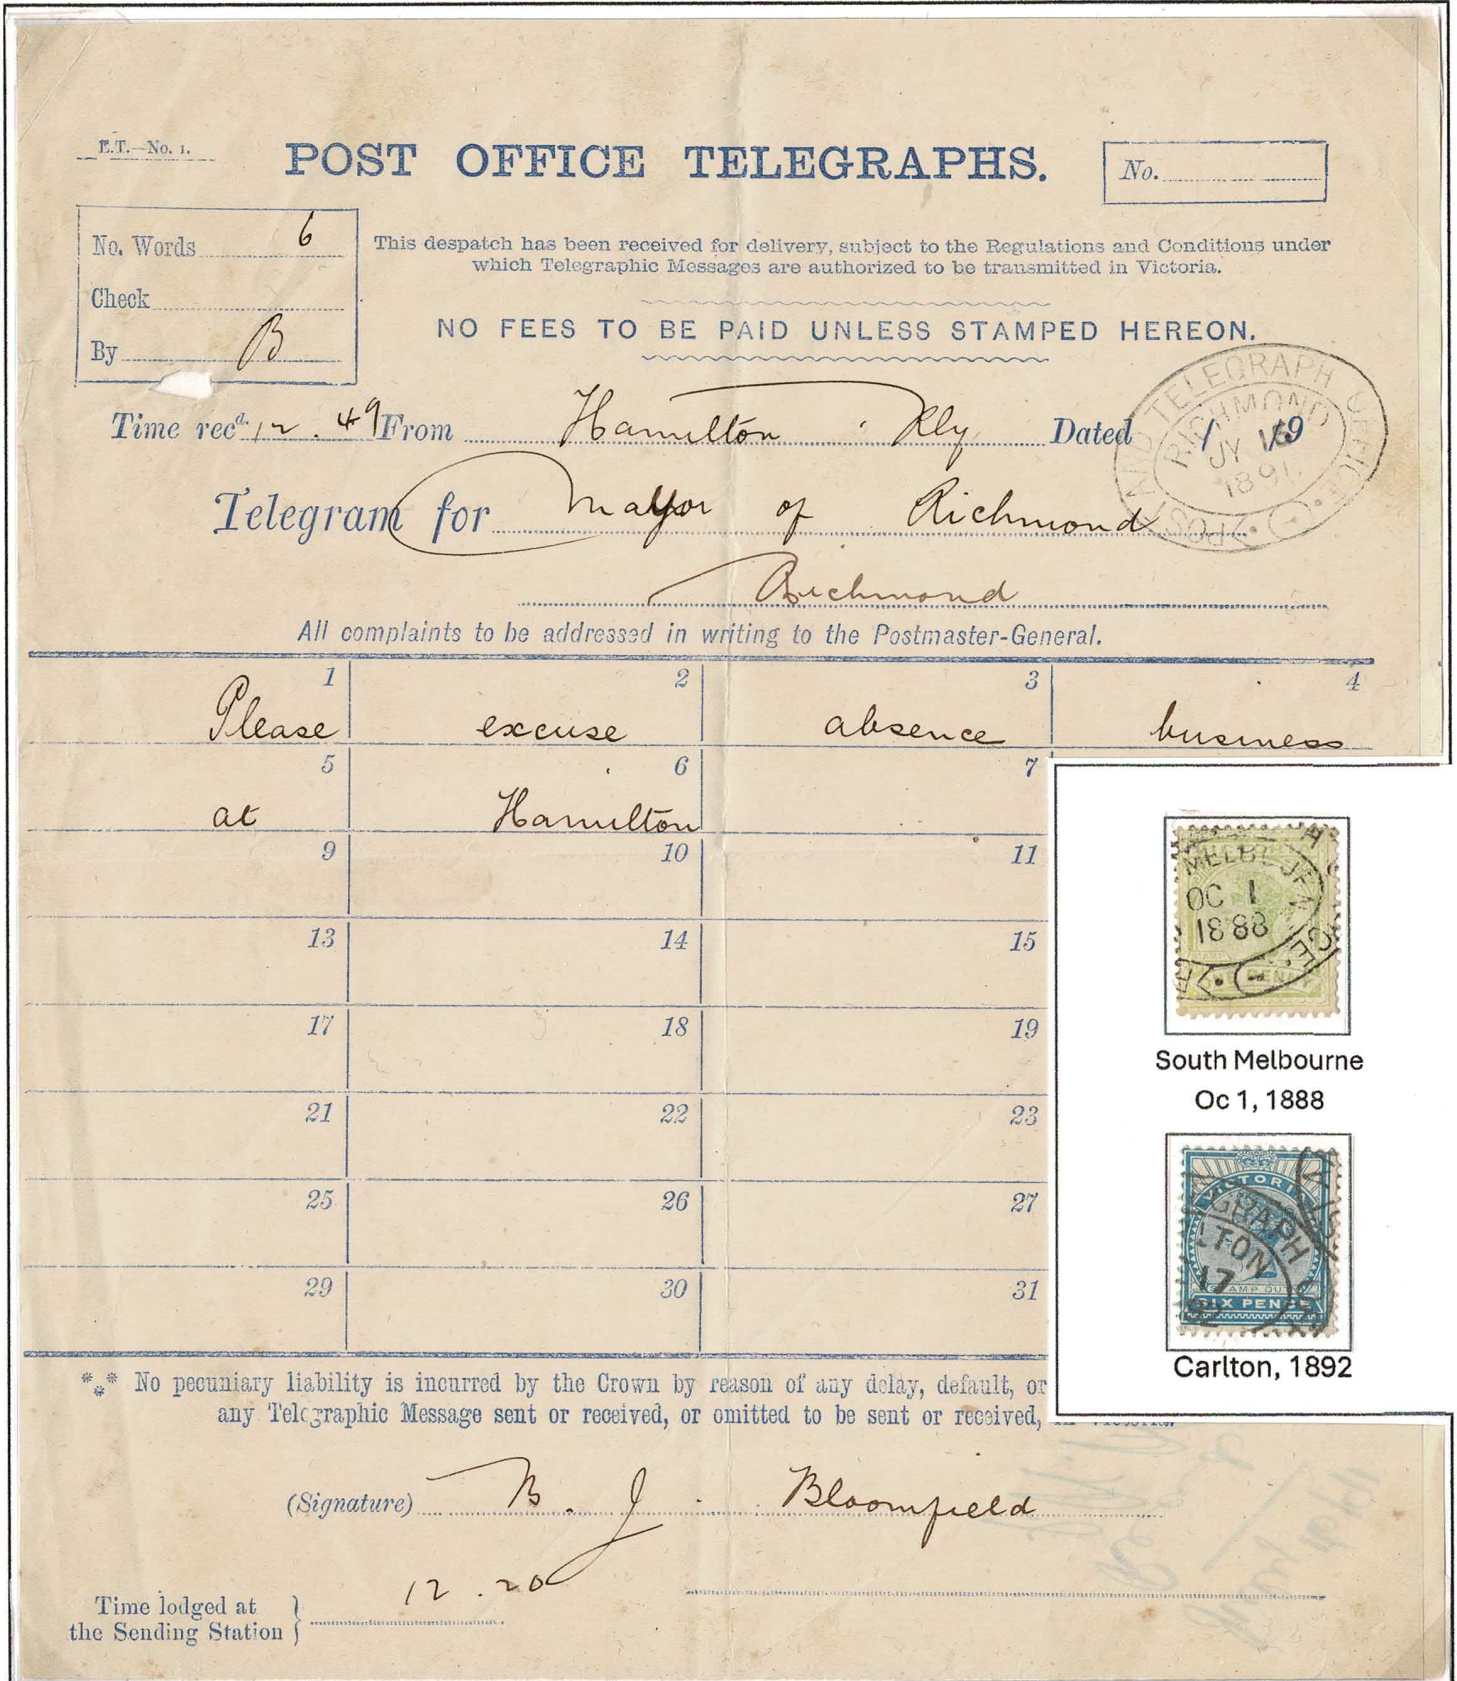 E.T.—No. 1.
POST OFFICE TELEGRAPHS.
No.
No. Words 6
Check
By B
This despatch has been received for delivery, subject to the Regulations and Conditions under
which Telegraphic Messages are authorized to be transmitted in Victoria.
NO FEES TO BE PAID UNLESS STAMPED HEREON.
POST AND TELEGRAPH OFFICE
RICHMOND
JY 15
1891
Time recd. 12.49 From Hamilton Rly Dated / /19
Telegram for Mayor of Richmond
Richmond
All complaints to be addressed in writing to the Postmaster-General.
1 2 3 4
Please excuse absence business
5 6 7
at Hamilton
9 10 11
13 14 15
17 18 19
21 22 23
25 26 27
29 30 31
MELBOURN
OC 1
1888
PENNY
South Melbourne
Oc 1, 1888
VICTORIA
GRAPH
LTON
17
STAMP DU
SIX PENCE
Carlton, 1892
*** No pecuniary liability is incurred by the Crown by reason of any delay, default, or
any Telegraphic Message sent or received, or omitted to be sent or received, in Victoria.
(Signature) B. J. Bloomfield
Time lodged at
the Sending Station } 12.20